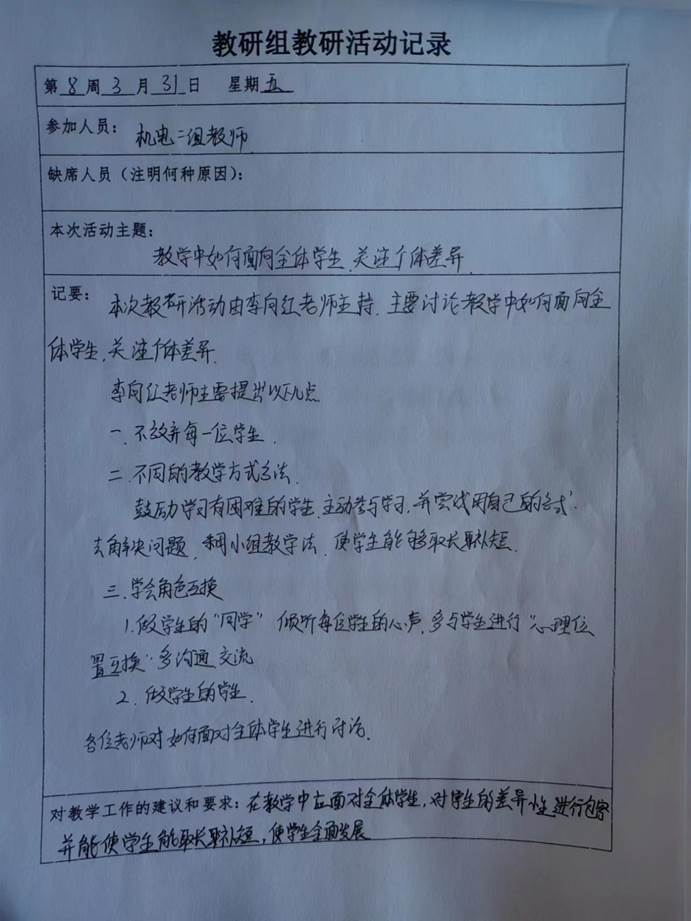 教研组教研活动记录
第 8 周 3 月 31 日 星期 五
参加人员： 机电二组教师
缺席人员（注明何种原因）：
本次活动主题：
教学中如何面向全体学生、关注个体差异
记要： 本次教研活动由李向红老师主持，主要讨论教学中如何面向全
体学生，关注个体差异.
李向红老师主要提出以下几点
一、不放弃每一位学生.
二、不同的教学方式方法.
鼓励学习有困难的学生，主动参与学习，并尝试用自己的方式
去解决问题，利用小组教学法，使学生能够取长补短.
三、学会角色互换
1.做学生的“同学” 倾听每位学生的心声，多与学生进行“心理位
置互换”多沟通 交流
2. 做学生的学生.
各位老师对如何面对全体学生进行讨论.
对教学工作的建议和要求：在教学中应面对全体学生，对学生的差异性进行包容
并能使学生能取长补短，使学生全面发展